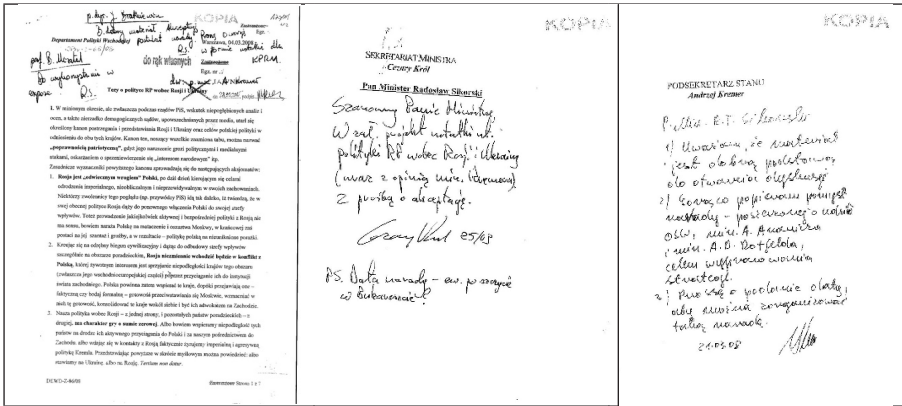 KOPIA
p. dyr. J. Bratkiewicz
Dobry materiał. Akceptuję
Departament Polityki Wschodniej
Warszawa, 04.03.2008 r.
R.S.
w formie notatki dla
KPRM.
do rąk własnych
Egz. nr
Do wykorzystania w
expose
R.S.
Tezy o polityce RP wobec Rosji i Ukrainy
I. W minionym okresie, ale zwłaszcza podczas rządów PiS, wskutek niepogłębionych analiz i
ocen, a także nierzadko demagogicznych sądów, upowszechnianych przez media, utarł się
określony kanon postrzegania i przedstawiania Rosji i Ukrainy oraz celów polskiej polityki w
odniesieniu do obu tych krajów. Kanon ten, noszący wszelkie znamiona tabu, można nazwać
„poprawnością patriotyczną”, gdyż jego naruszenie grozi politycznymi i medialnymi
atakami, oskarżeniem o sprzeniewierzenie się „interesom narodowym” itp.
Zasadnicze wyznaczniki powyższego kanonu sprowadzają się do następujących aksjomatów:
1. Rosja jest „odwiecznym wrogiem” Polski, po dziś dzień kierującym się celami
odrodzenia imperialnego, nieobliczalnym i nieprzewidywalnym w swoich zachowaniach.
Niektórzy zwolennicy tego poglądu (np. prezydenccy PiS) idą tak daleko, iż mniemają, że w
swej obecnej polityce Rosja dąży do ponownego włączenia Polski do swojej strefy
wpływów. Toteż prowadzenie jakiejkolwiek aktywnej i bezpośredniej polityki z Rosją nie
ma sensu, bowiem naraża Polskę na
2. Kierując się na odrębny biegun cywilizacyjny i dążąc do odbudowy strefy wpływów
szczególnie na obszarze poradzieckim, Rosja niezmiennie wchodzić będzie w konflikt z
Polską, której żywotnym interesem jest sprzyjanie niepodległości krajów tego obszaru
(zwłaszcza jego wschodnioeuropejskiej części) poprzez przyciąganie ich do instytucji
świata zachodniego. Polska powinna zatem wspierać te kraje, dopóki przejawiają one –
faktyczną czy bodaj formalną – gotowość przeciwstawiania się Moskwie, wzmacniać w
nich tę gotowość, konsolidować te kraje wokół siebie i być ich adwokatem na Zachodzie.
3. Nasza polityka wobec Rosji – z jednej strony, i pozostałych państw poradzieckich – z
drugiej, ma charakter gry o sumie zerowej. Albo bowiem wspieramy niepodległość tych
państw na drodze ich aktywnego przyciągania do Polski i za naszym pośrednictwem do
Zachodu, albo wdając się w kontakty z Rosją faktycznie żyrujemy imperialną i agresywną
politykę Kremla. Przedstawiając powyższe w skrócie myślowym można powiedzieć: albo
stawiamy na Ukrainę, albo na Rosję. Tertium non datur.
Strona 1 z 7
KOPIA
SEKRETARIAT MINISTRA
Cezary Król
Pan Minister Radosław Sikorski
Szanowny Panie Ministrze,
W zał. projekt notatki nt.
polityki RP wobec Rosji i Ukrainy
(wraz z opinią min. Kremera)
z prośbą o akceptację.
Cezary Król 25/03
PS. Data narady – ew. po szczycie
w Bukareszcie?
KOPIA
PODSEKRETARZ STANU
Andrzej Kremer
P. Min. R.T. Sikorski
1) Uważam, że materiał
jest dobrą podstawą
do otwarcia dyskusji
2) Gorąco popieram pomysł
narady – poszerzonego
min. A. Ananicza
i min. A.D. Rotfelda,
celem wypracowania
strategii.
3) Proszę o podanie daty,
aby można zorganizować
taką naradę.
21.03.08